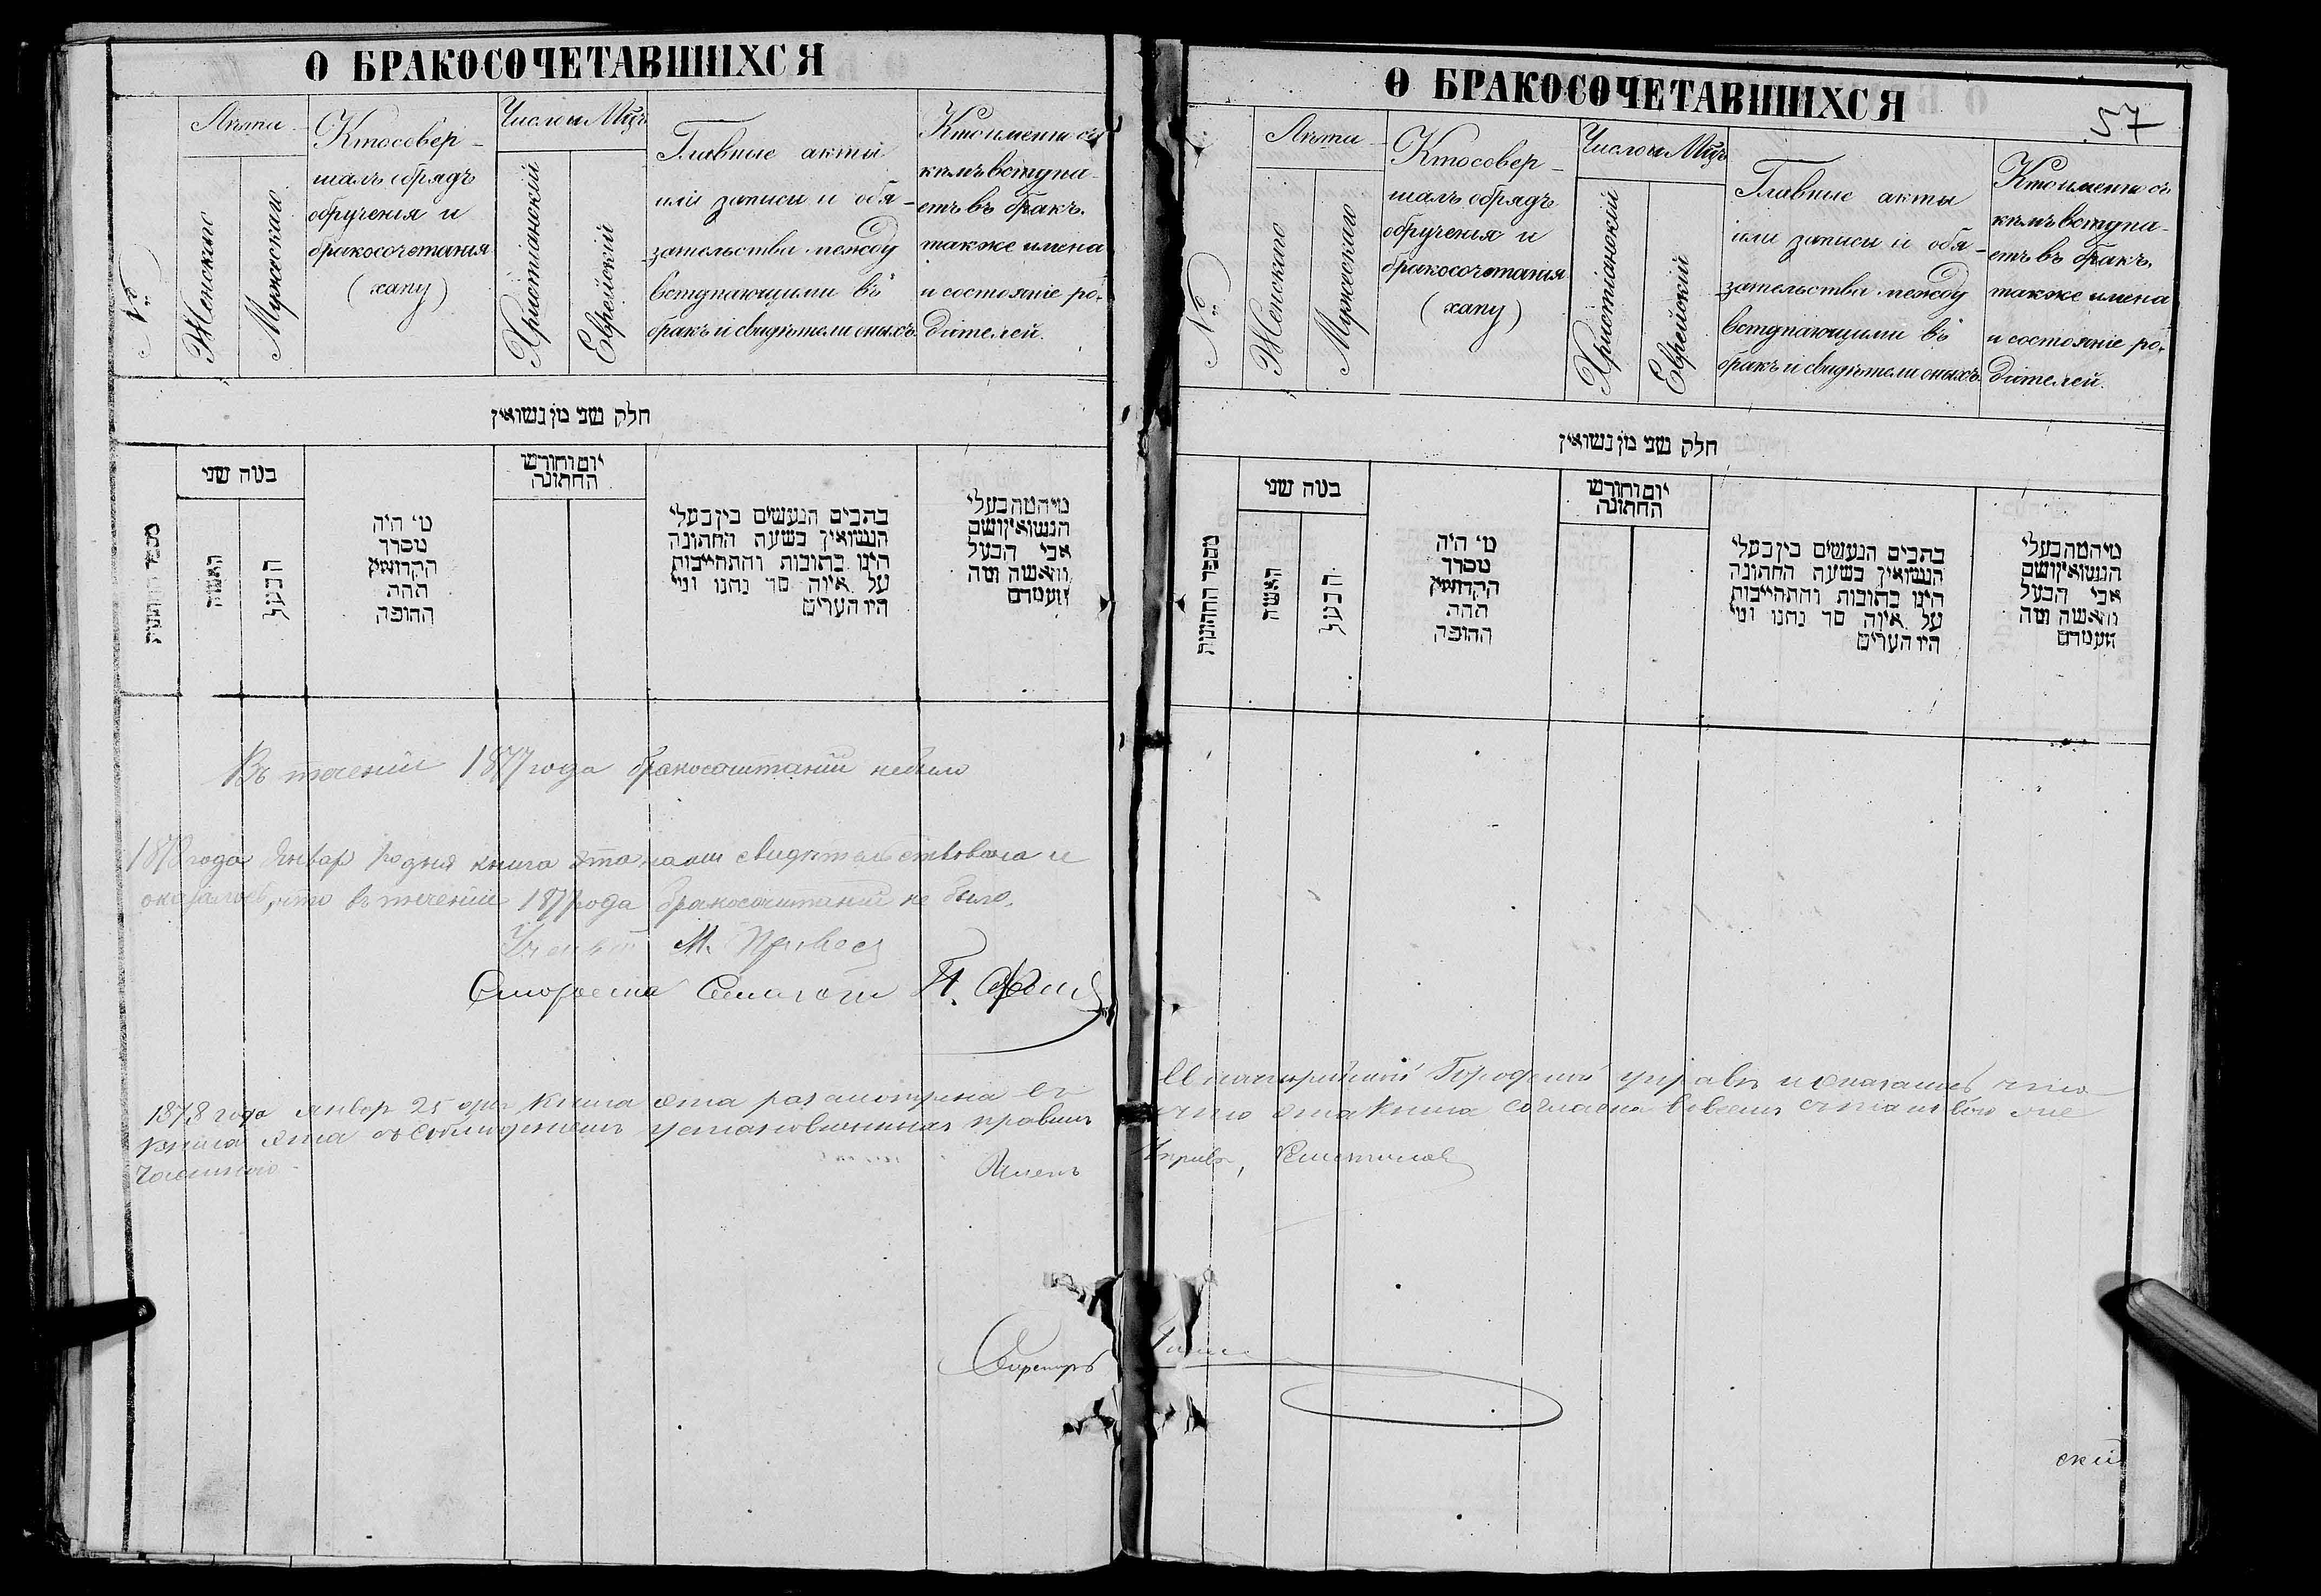 О БРАКОСОЧЕТАВШИХСЯ
№
Лѣта
Женскаго
Мужескаго
Кто совер-
шалъ обрядъ
обрученія и
бракосочетанія
(хапу)
Число и Мѣцъ
Христіанскій
Еврейскій
Главные акты
или записи и обя-
зательства между
вступающими въ
бракъ и свидѣтели оныхъ.
Кто именно съ
кѣмъ вступа-
етъ въ бракъ.
также имена
и состояніе ро-
дителей.
חלק שני מן נשואין
מספר החתונות
במה שני
האשה
הבעל
מי היה
מסדר
הקדושין
תחת
החופה
יום וחודש
החתונה
כתבים הנעשים בין בעלי
הנשואין בשעת החתונה
הינו כתובות והתחייבות
על איזה סך נתנו ומי
היו העדים
מי המה בעלי
הנשואין ושם
אבי הבעל
והאשה ומה
מעמדם
Въ теченіи 1877 года бракосочитаній небыло
1878 года Январ 1го дня книга эта нами свидѣтельствована и
оказалось, что въ теченіи 1877 года бракосочитаній не было.
М.
Староста Синагоги П.
1878 года январ 25 дня книга эта разсмотрена въ
книга эта съ соблюденіемъ установленныхъ правилъ
Членъ
Секретарь
О БРАКОСОЧЕТАВШИХСЯ
57
№
Лѣта
Женскаго
Мужескаго
Кто совер-
шалъ обрядъ
обрученія и
бракосочетанія
(хапу)
Число и Мѣцъ
Христіанскій
Еврейскій
Главные акты
или записи и обя-
зательства между
вступающими въ
бракъ и свидѣтели оныхъ.
Кто именно съ
кѣмъ вступа-
етъ въ бракъ.
также имена
и состояніе ро-
дителей.
חלק שני מן נשואין
מספר החתונות
במה שני
האשה
הבעל
מי היה
מסדר
הקדושין
תחת
החופה
יום וחודש
החתונה
כתבים הנעשים בין בעלי
הנשואין בשעת החתונה
הינו כתובות והתחייבות
על איזה סך נתנו ומי
היו העדים
מי המה בעלי
הנשואין ושם
אבי הבעל
והאשה ומה
מעמדם
Городской управѣ и оказалось что
что эта книга согласна
Управы,
скій